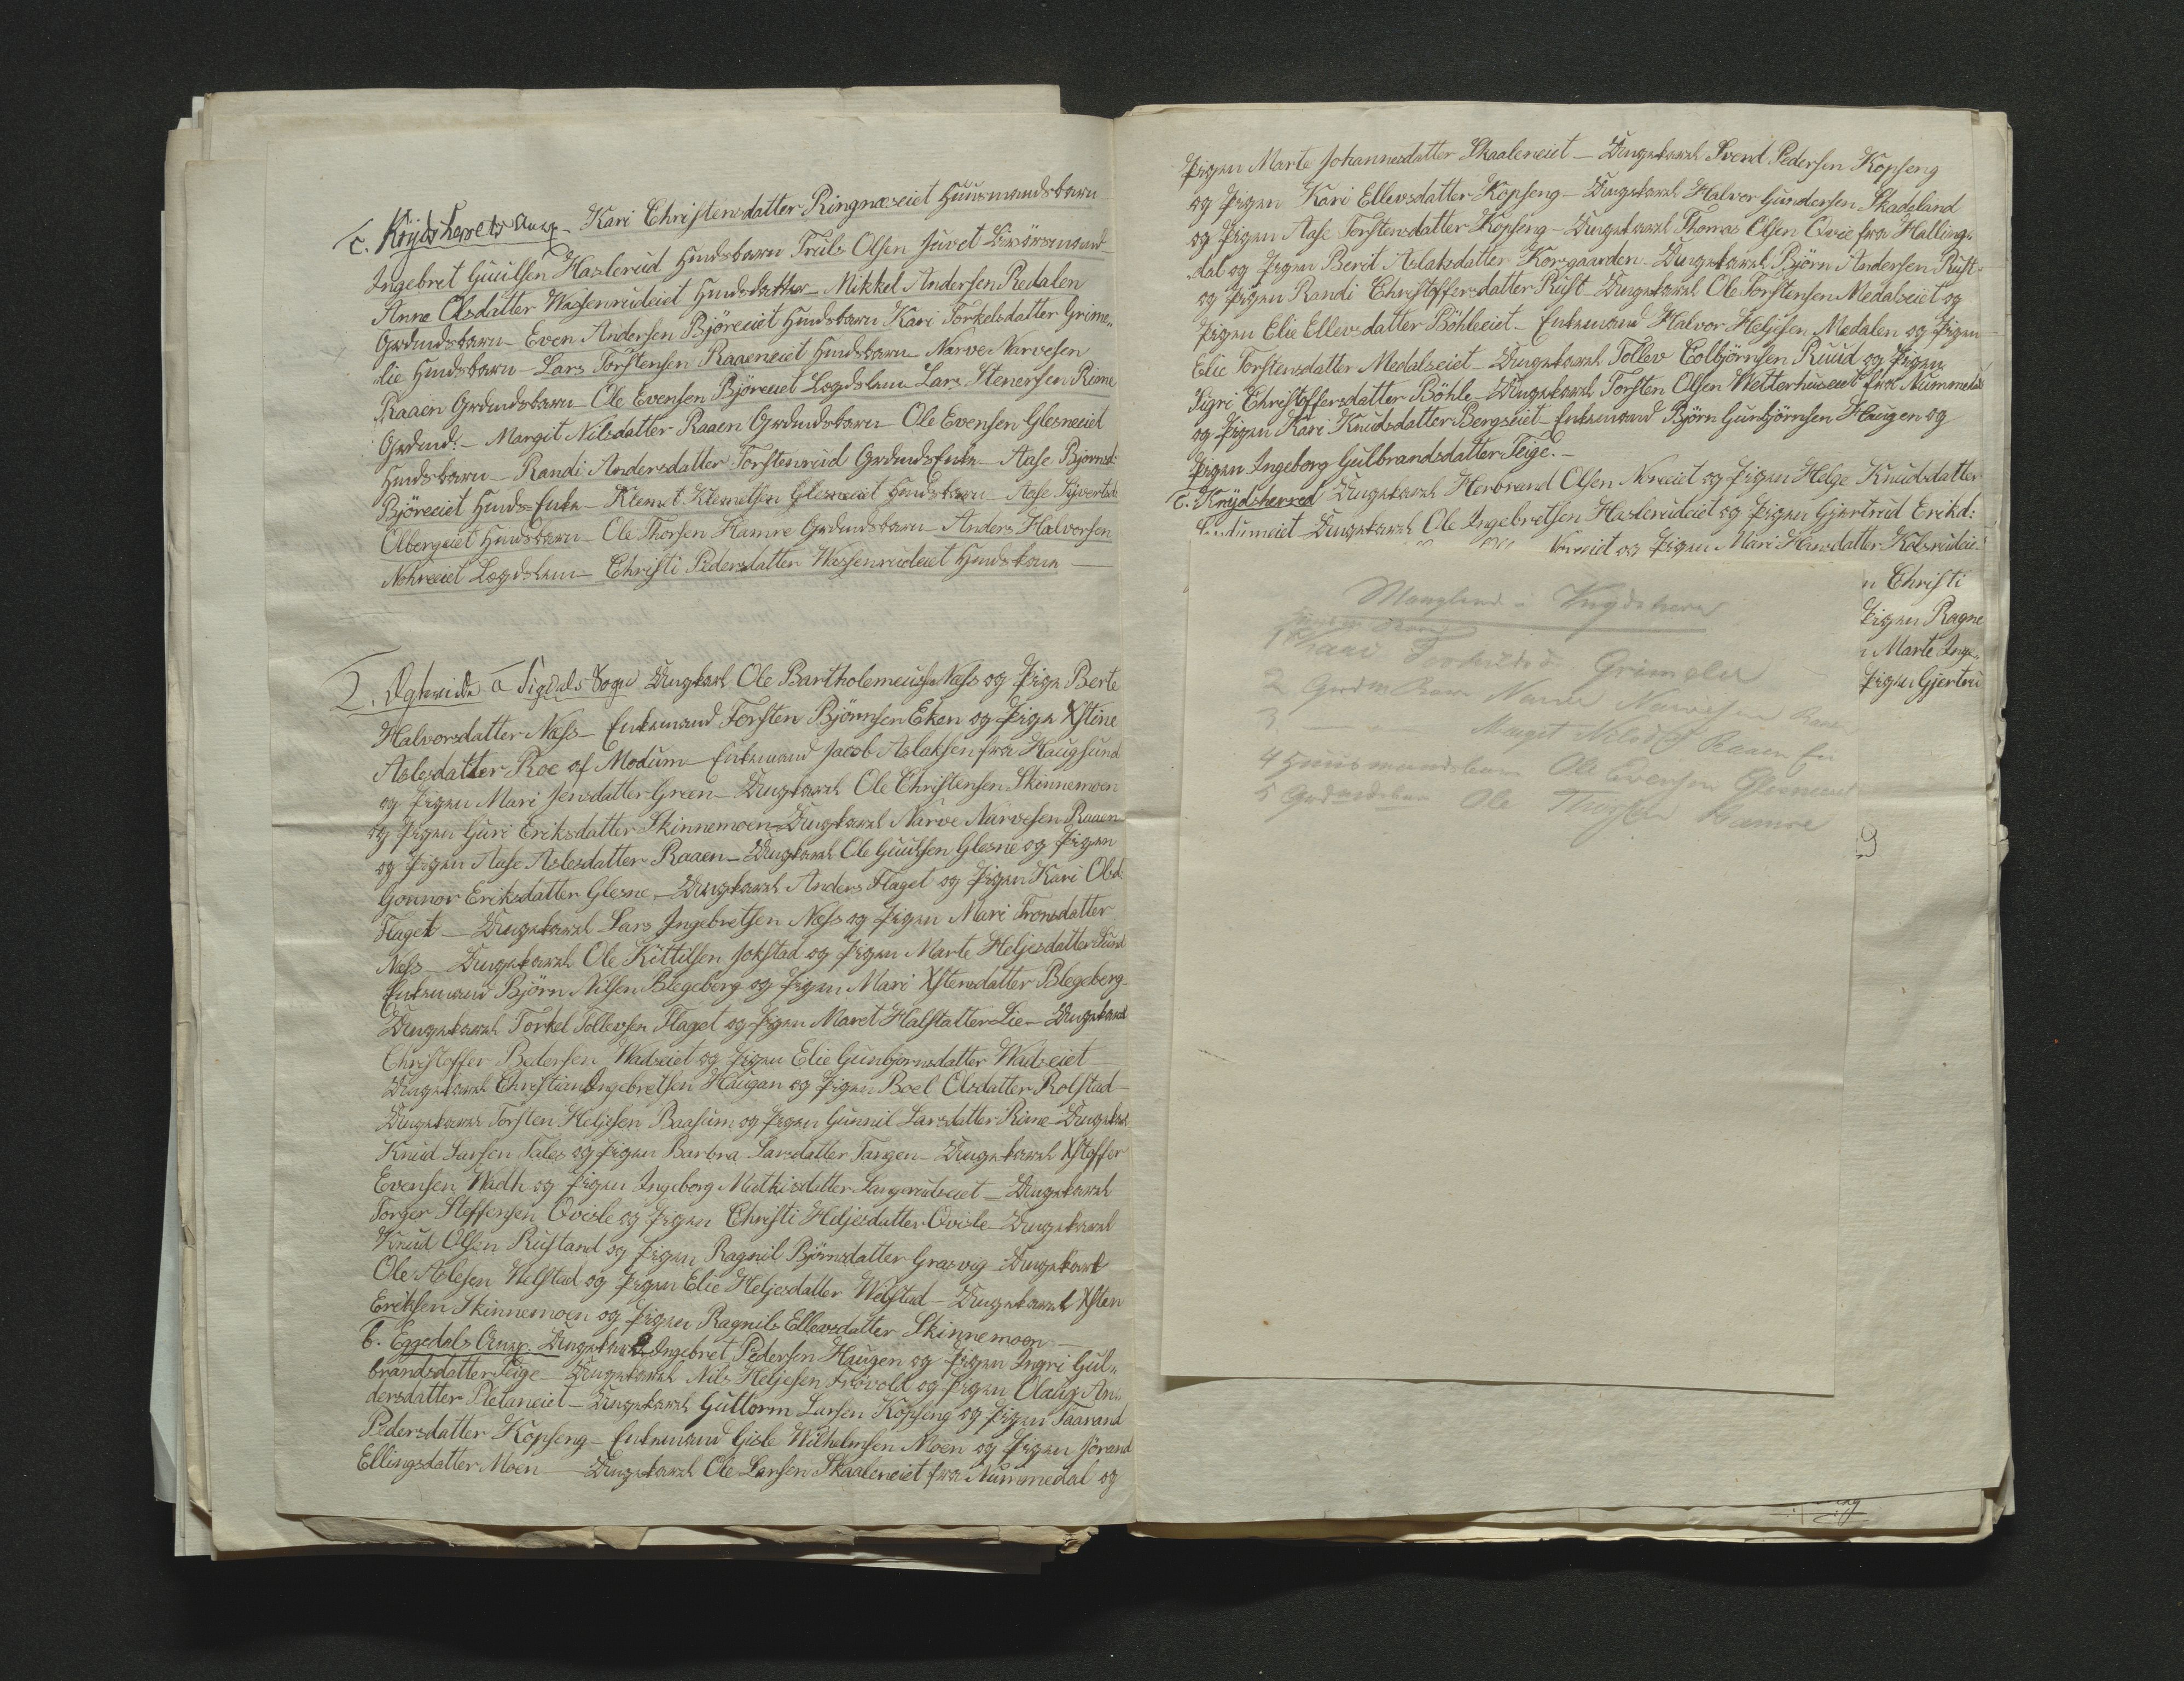 c. Krydsherrets Anex - Kari Christensdatter Ringnæseiet Huusmandsbarn
Ingebret Guulsen Haslerud Hmdsbarn Truls Olsen Juvet
Anne Olsdatter Wassenrudeiet Hmdsdatter - Mikkel Andersen Redalen
Grdmdsbarn - Even Andersen Björeeiet Hmdsbarn Kari Torkelsdatter Grime„
„lie Hmdsbarn - Lars Torstensen Raaeneiet Hmdsbarn - Narve Narvesen
Raaen Grdmdsbarn - Ole Evensen Björeeiet Lægdslem Lars Stenersen Rime
Grdmd: - Margit Nilsdatter Raaen Grdmdsbarn - Ole Evensen Glesneeiet
Hmdsbarn - Randi Andersdatter Torstenrud GrdmdsEnke - Aase Björnsd:
Björeeiet Hmds-Enke - Klemet Klemetsen Glesneeiet Hmdsbarn - Aase Syvertsd:
Olbergeiet Hmdsbarn - Ole Thorsen Hamre Grdmdsbarn - Anders Halvorsen
Nohreeiet Lægdslem - Christi Pedersdatter Wassenrudeiet Hmdsbarn
2. Ægteviede a Sigdals Sogn Ungkarl Ole Bartholemeussen Næss og Pige Berte
Halvorsdatter Næss - Enkemand Torsten Björnsen Eken og Pige Xstine
Aslesdatter Roe af Modum - Enkemand Jacob Aslaksen fra Haugsund
og Pigen Mari Jensdatter Green - Ungkarl Ole Christensen Skinnemoen
og Pigen Guri Eriksdatter Skinnemoen - Ungkarl Narve Narvesen Raaen
og Pigen Aase Aslesdatter Raaen - Ungkarl Ole Guulsen Glesne og Pigen
Gonnor Eriksdatter Glesne - Ungkarl Anders Flaget og Pigen Kari Olsd:
Flaget - Ungekarl Lars Ingebretsen Næss og Pigen Mari Tronsdatter
Næss - Ungekarl Ole Kittilsen Jokstad og Pigen Marte Heljesdatter Lund
Enkemand Björn Nilsen Blegeberg og Pigen Mari Xstensdatter Blegeberg -
Ungekarl Torkel Tollevsen Flaget og Pigen Maret Halstatter Lie - Ungekarl
Christoffer Pedersen Wadseiet og Pigen Elie Gunbjörnsdatter Wadseiet
Ungekarl Christian Ingebretsen Haugan og Pigen Boel Olsdatter Rolstad -
Ungekarl Torsten Heljesen Baasum og Pigen Gunnil Larsdatter Rime - Ungekarl
Knud Larsen Tales og Pigen Barbra Larsdatter Tangen - Ungekarl Xstoffer
Evensen Wadh og Pigen Ingeborg Mathisdatter Langerudseiet - Ungekarl
Torger Steffensen Qvisle og Pigen Christi Heljesdatter Qvisle - Ungekarl
Knud Olsen Rustand og Pigen Ragnil Björnsdatter Grasvig - Ungekarl
Ole Aslesen Welstad og Pigen Elie Heljesdatter Welstad - Ungekarl Xsten
Eriksen Skinnemoen og Pigen Ragnils Ellevsdatter Skinnemoen -
b. Eggedals Anex. Ungekarl Ingebret Pedersen Haugen og Pigen Ingri Gul„
brandsdatter Teige - Ungekarl Nils Heljesen Frövold og Pigen Olaug An„
dersdatter Pletaneiet - Ungekarl Guttorm Larsen Kopseng og Pigen Taarand
Pedersdatter Kopseng - Enkemand Gisle Wilhelmsen Moen og Pigen Jörand
Ellingsdatter Moen - Ungekarl Ole Larsen Skaaleneiet fra Nummedal og
Pigen Marte Johannesdatter Skaaleneiet - Ungekarl Svend Pedersen Kopseng
og Pigen Kari Ellevsdatter Kopseng - Ungekarl Halvor Gundersen Skadeland
og Pigen Aase Torstensdatter Kopseng - Ungekarl Thomas Olsen Qvie fra Halling„
dal og Pigen Berit Aslaksdatter Korsgaarden - Ungekarl Björn Andersen Rust
og Pigen Randi Christoffersdatter Rust - Ungekarl Ole Torstensen Medalseiet og
Pigen Elie Ellevsdatter Böhleeiet - Enkemand Halvor Heljesen Medalen og Pigen
Elie Torstensdatter Medalseiet - Ungekarl Tollev Colbjörnsen Ruud og Pigen
Sigri Christoffersdatter Böhle - Ungekarl Torsten Olsen Wetterhuseiet fra Nummedal
og Pigen Kari Knudsdatter Bergseiet - Enkemand Björn Gunbjörnsen Haugen og
Pigen Ingeborg Gulbrandsdatter Teige. -
C. Krydsherred Ungekarl Herbrand Olsen Noreeiet og Pigen Helge Knudsdatter
Ungekarl Ole Ingebretsen Haslerudeiet og Pigen Gjertrud Eriksd:
Noreeiet og Pigen Mari Hansdatter Kolsrudeie
n Christi
Pigen Ragne
Marte Inge„
Pigen Gjertru
Manglend i Krydsherred
1 Kari Torkelsd Grimelie
2 Grdm Barn Narve Narvesen Raaen
3 Margit Nilsdtr Raaen
4 Huusmandsbarn Ole Evensen Glesneeiet
5 Grdmdsbarn Ole Thorsen Hamre